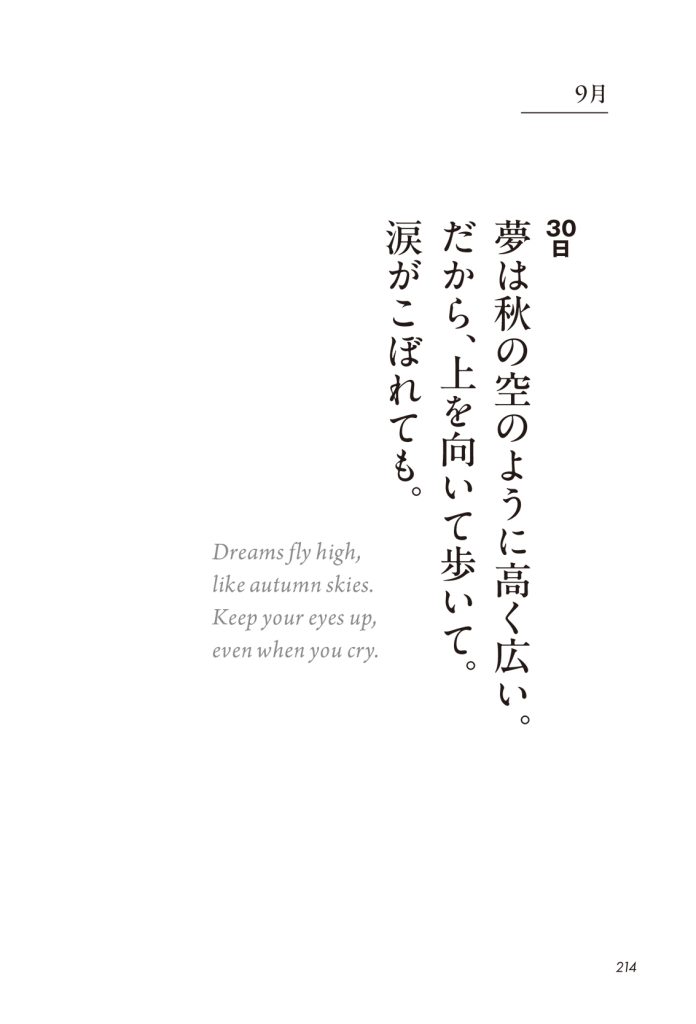 9月
30日
夢は秋の空のように高く広い。
だから、上を向いて歩いて。
涙がこぼれても。
Dreams fly high,
like autumn skies.
Keep your eyes up,
even when you cry.
214